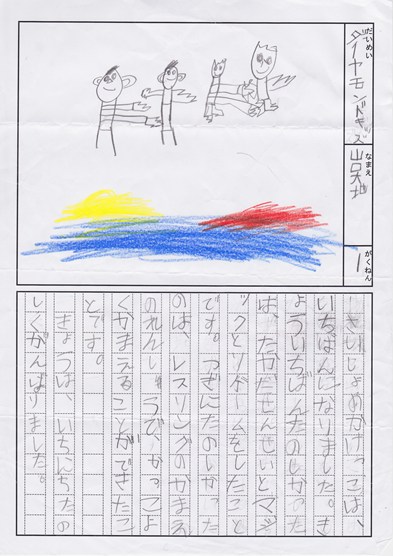 だいめい
ダイヤモンドキッズ
なまえ
大地
がくねん
1
かけっこは、
いちばんになりました。き
ょういちばんたのしかったの
は、たかだせんせいとマジ
ックとりゲームをしたこと
です。つぎにたのしかった
のは、レスリングのかまえ
のれんしゅうび、かっこよ
くかまえることができたこ
とです。
きょうは、いちにちたの
しくがんばりました。